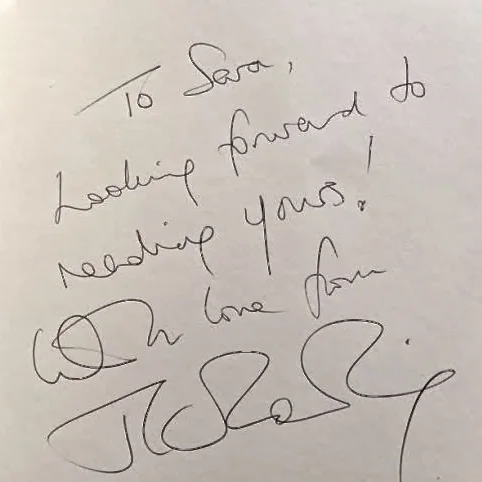 To Sara,
Looking forward to
reading yours!
With love from
JK Rowling